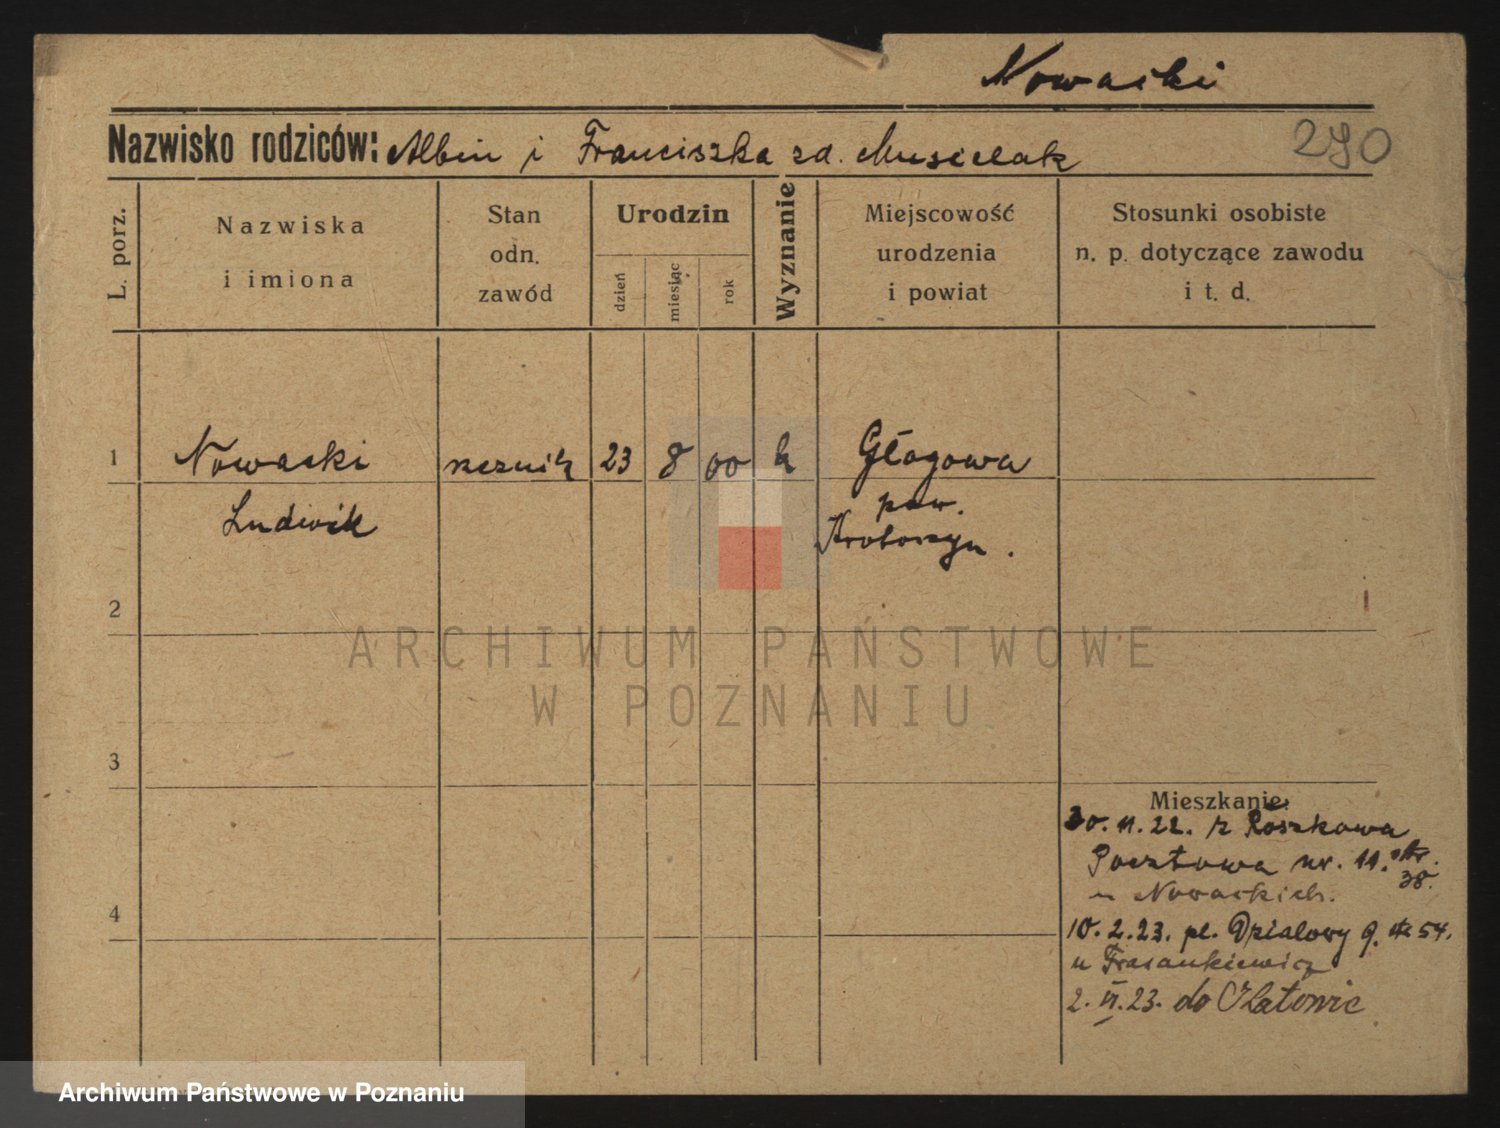 Nowacki
Nazwisko rodziców: Albin i Franciszka zd. Musielak
290
L. porz.
Nazwiska
i imiona
Stan
odn.
zawód
Urodzin
dzień
miesiąc
rok
Wyznanie
Miejscowość
urodzenia
i powiat
Stosunki osobiste
n. p. dotyczące zawodu
i t. d.
1
Nowacki
Ludwik
rzeźnik
23
8
00
k
Głogowa
pow.
Krotoszyn.
2
3
4
Mieszkanie:
30. 11. 22. z Roszkowa
Pocztowa nr. 11. str.
38.
u Nowackich.
10. 2. 23. pl. Działowy 9. str 54.
u
2. VI. 23. do Katowic
ARCHIWUM PAŃSTWOWE
W POZNANIU
Archiwum Państwowe w Poznaniu